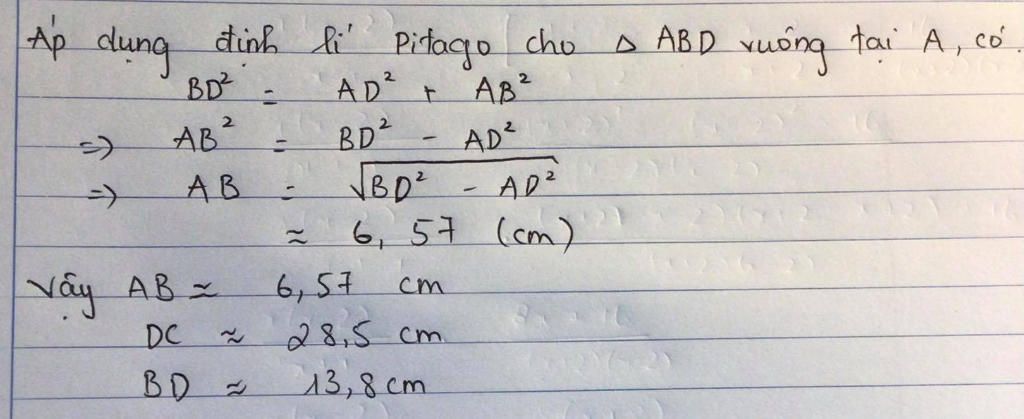 Áp dụng định lí Pitago cho Δ ABD vuông tại A, có.
BD² = AD² + AB²
=> AB² = BD² - AD²
=> AB = √BD² - AD²
≈ 6,57 (cm)
Vậy AB ≈ 6,57 cm
DC ≈ 28,5 cm
BD ≈ 13,8 cm